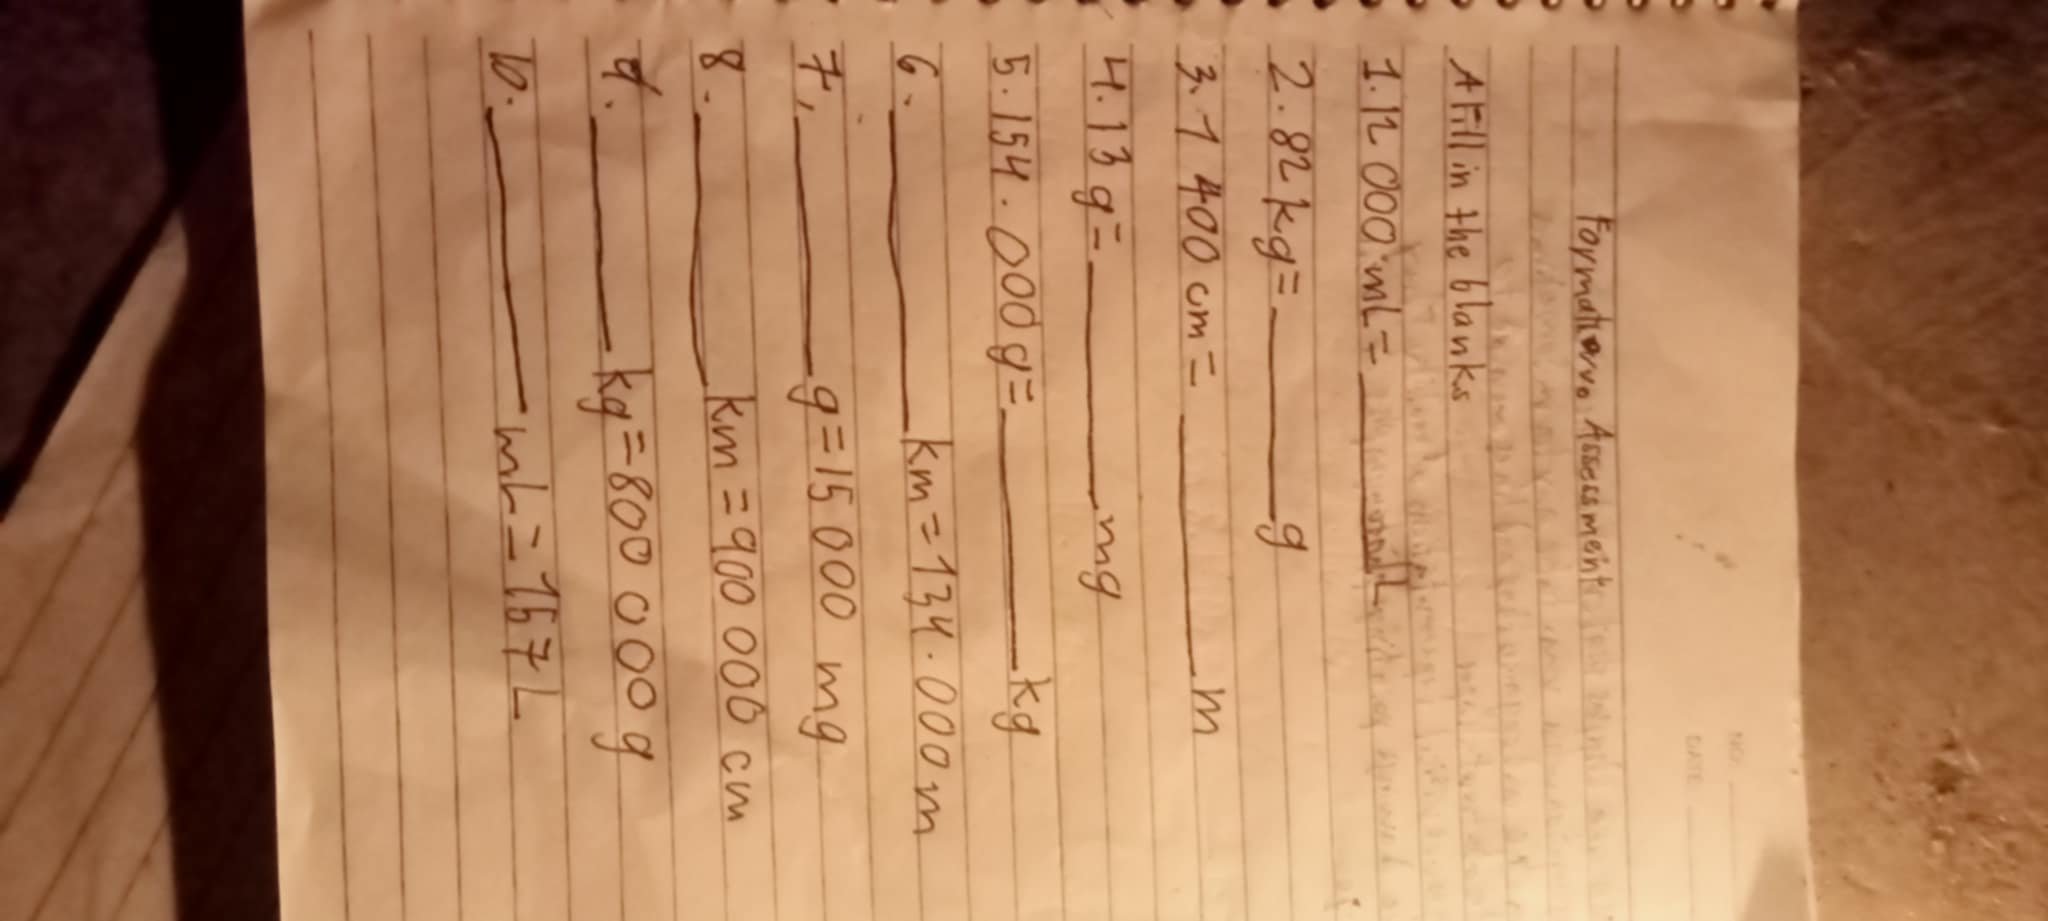 NO.
DATE
Formative Assessment
A Fill in the blanks
1. 12 000 mL = ________ L
2. 82 kg = ________ g
3. 7 400 cm = ________ m
4. 13 g = ________ mg
5. 154.000 g = ________ kg
6. ________ km = 134.000 m
7, ________ g = 15 000 mg
8. ________ km = 900 000 cm
9. ________ kg = 800 000 g
10. ________ mL = 767 L